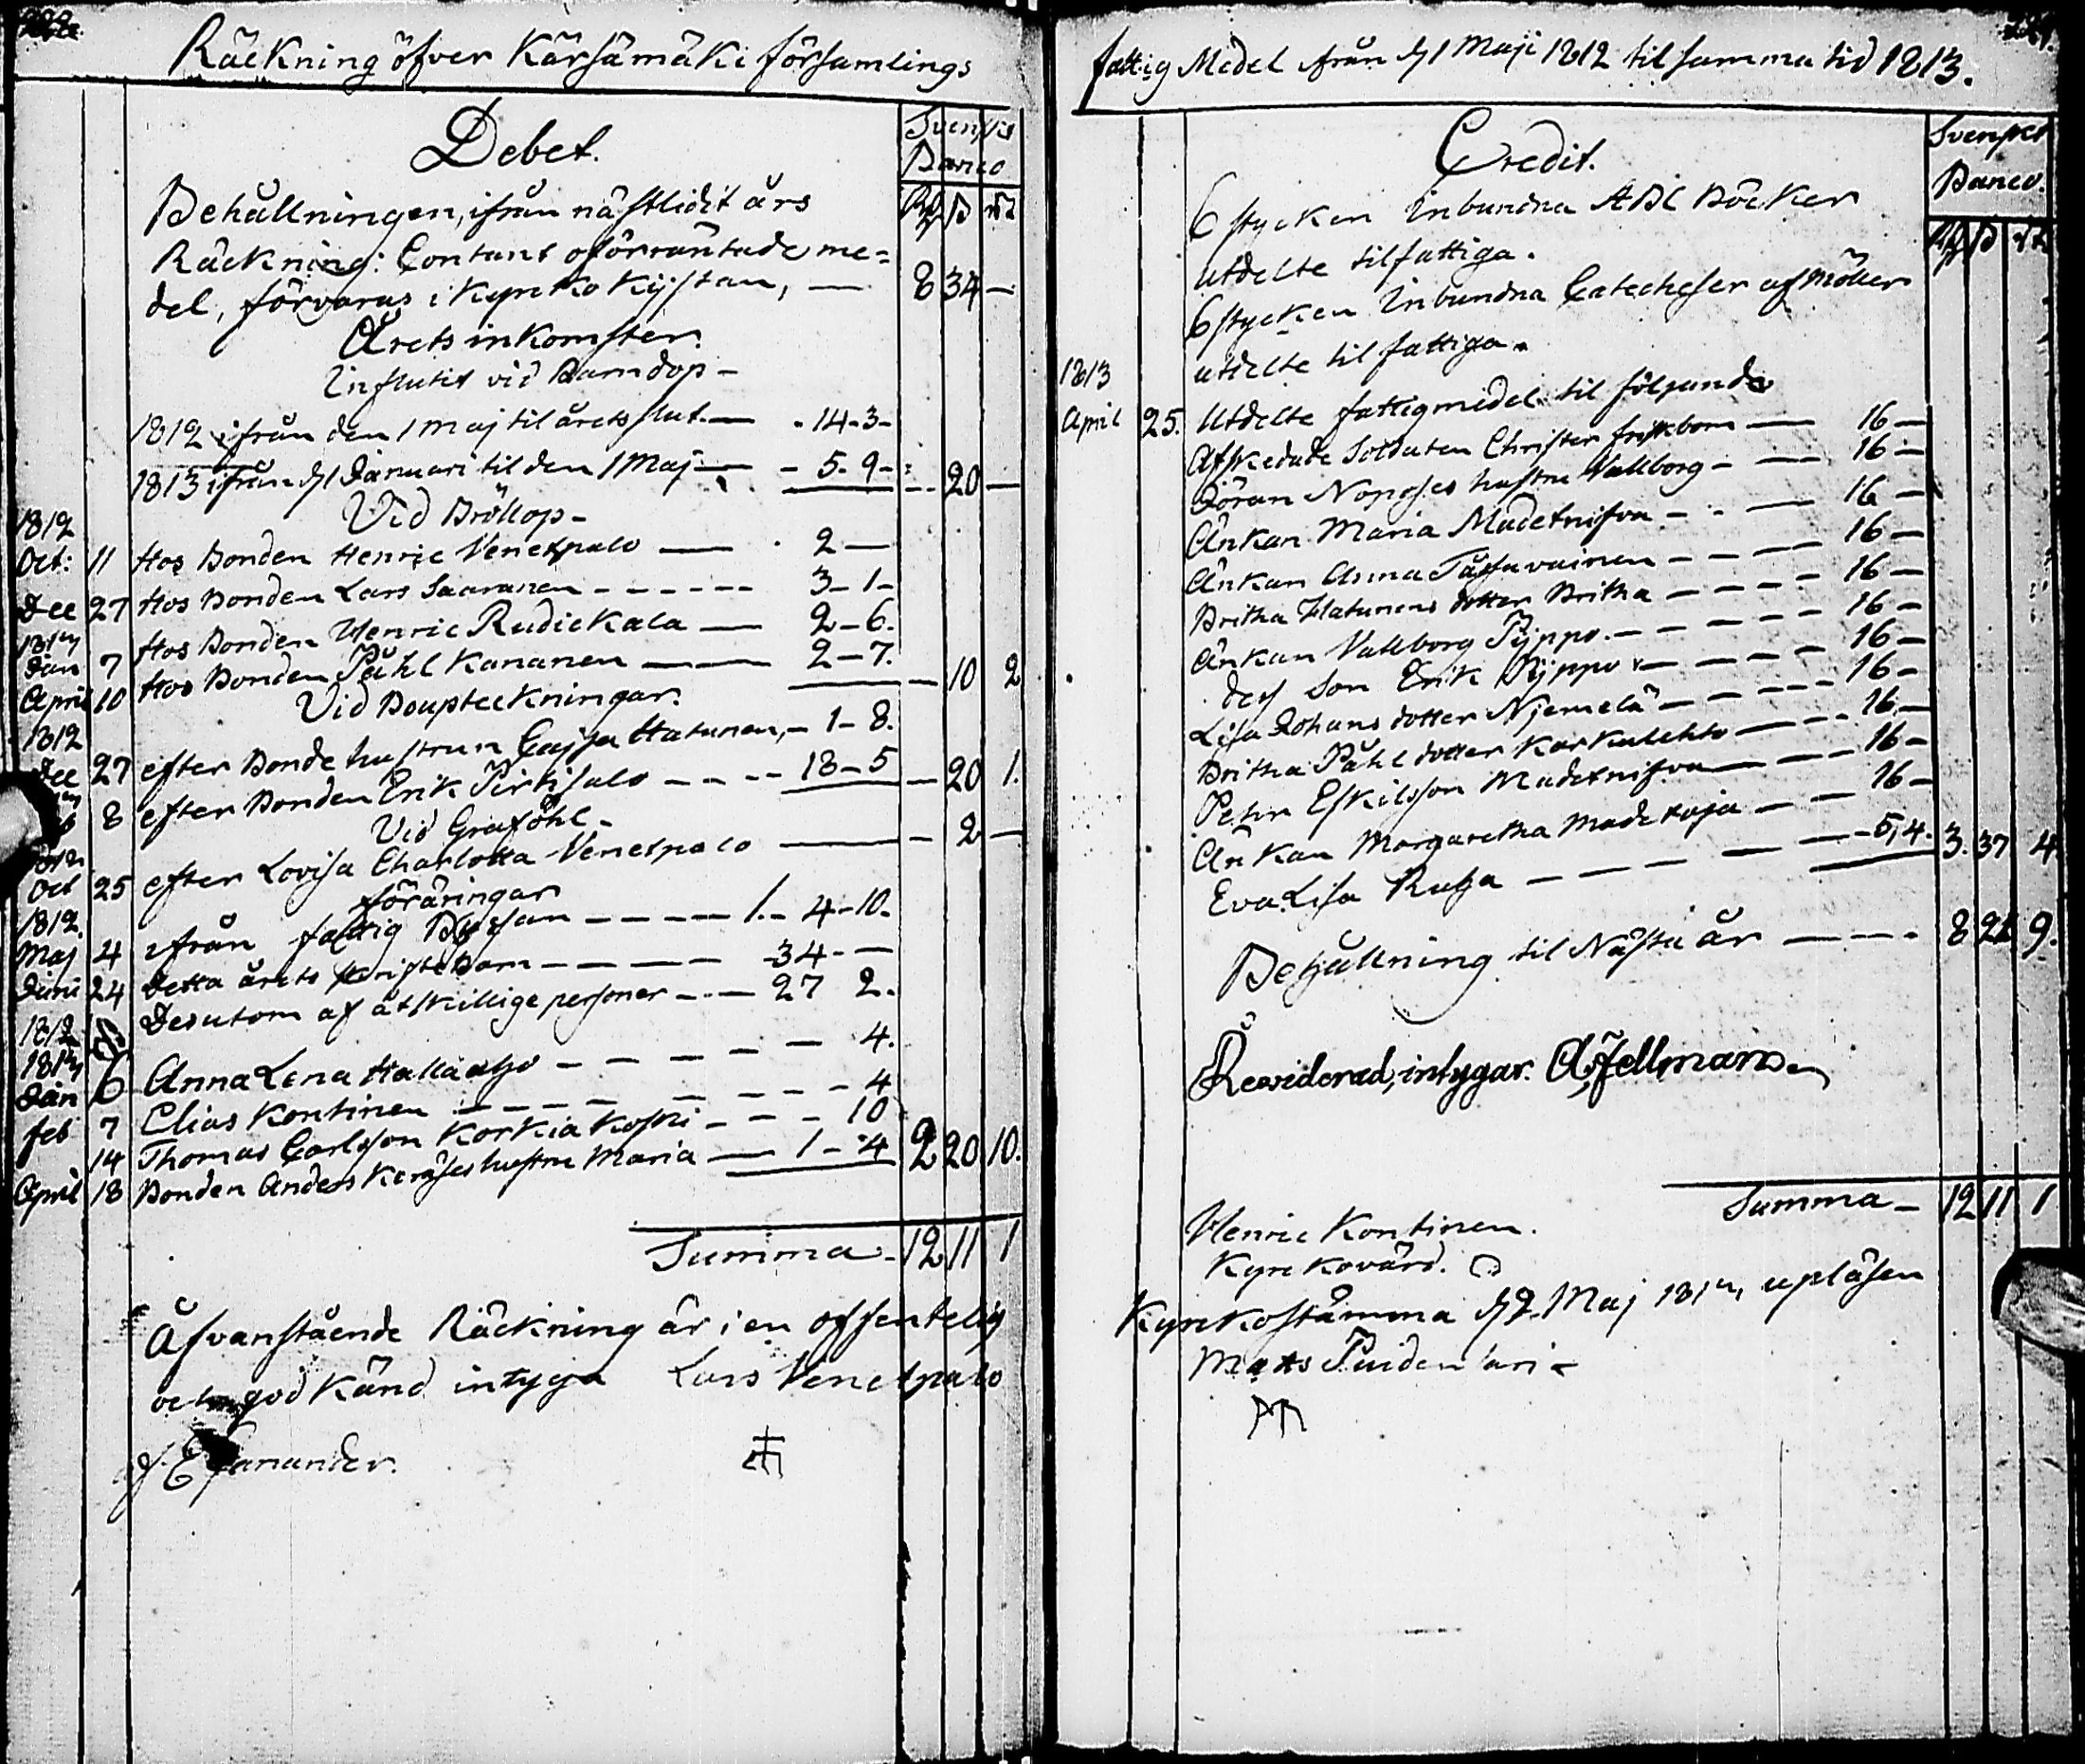 Räckning öfver Kärsämäki församlings
Debet.
Svenskt
Banco
Behållningen, ifrån nästlidit års
Räckning: Contant oförräntade me=
del, förvaras i Kyrko Kistan, — 8 34 —
Årets inkomster.
Influtit vid Barndop —
1812 ifrån den 1 Maj til årets slut — - 14-3-
1813 ifrån d. 1 Januari til den 1 Maj — - 5-9- — 20 —
Vid Bröllop —
1812
Oct: 11 Hos Bonden Henric Venetpalo — 2 —
Dec 27 Hos Bonden Lars Saaranen - - - - - - 3-1-
1813
Jan 7 Hos Bonden Henric Rudickala — 2-6.
April 10 Hos Bonden Påhl Kananen — 2-7. — 10 2
Vid Boupteckningar.
1812
Dec 27 efter Bonde hustrun Cajsa Hatunen, - 1-8.
8 efter Bonden Erik Pirkisalo - - - - 18-5 — 20 1.
Vid Graföhl -
1812
Oct 25 efter Lovisa Charlotta Venetpalo — — 2 —
föräringar
1812.
Maj 4 ifrån fattig Byssan - - - - - 1.- 4-10.
Juni 24 Detta årets - - - - - - 34 - —
1812 Desutom af åtskillige personer - - - 27 2.
1813
Jan 6 Anna Lena Hallaaho - - - - - - 4.
Feb 7 Elias Kontinen - - - - - - - - - 4
14 Thomas Carlsson Korkiakoski - - - 10
April 18 Bonden Anders Keräses hustru Maria — 1-4 2 20 10.
Summa - 12 11 1
Åfvanstående Räckning är i en offentelig
och godkänd intyga Lars Venetpalo
J. E. Fanander.
fattig Medel från d. 1 Maji 1812 til samma tid 1813.
Credit.
Svenskt
Banco.
6 stycken Inbundna ABC Böcker
utdelte til fattiga.
6 stycken Inbundna Catecheser af Möller
utdelte til fattiga.
1813
April 25. Utdelte fattigmedel til följande
Afskedade Soldaten Christer Friskbom — 16 —
Jöran Noposes hustru Vallborg - — 16 —
Änkan Maria Madetnisva - - — 16 —
Änkan Anna - - — — 16 —
Britha Hatunens dotter Britha - - - - 16 —
Änkan Vallborg Pyppo. - - - - - - 16 —
des son Erik Pyppo - - - - - - 16 —
Lisa Johans dotter Njemelä - - - - - - 16 —
Britha Påhl dotter Karkulehto — — - - 16 —
Petter Eskilsson Madetnisva — — - 16 —
Änkan Margaretha Madetoja - - - - 16 —
Eva Lisa Rutja - - - - - - 5,4. 3. 37 4
Behållning til Nästa år — — — 8 21 9.
Reviderad, intygar. A. Fellman
Summa - 12 11 1
Henric Kontinen.
Kyrkovärd.
Kyrkostämma d. 9 Maj 1813 upläsen
Matts Puiden